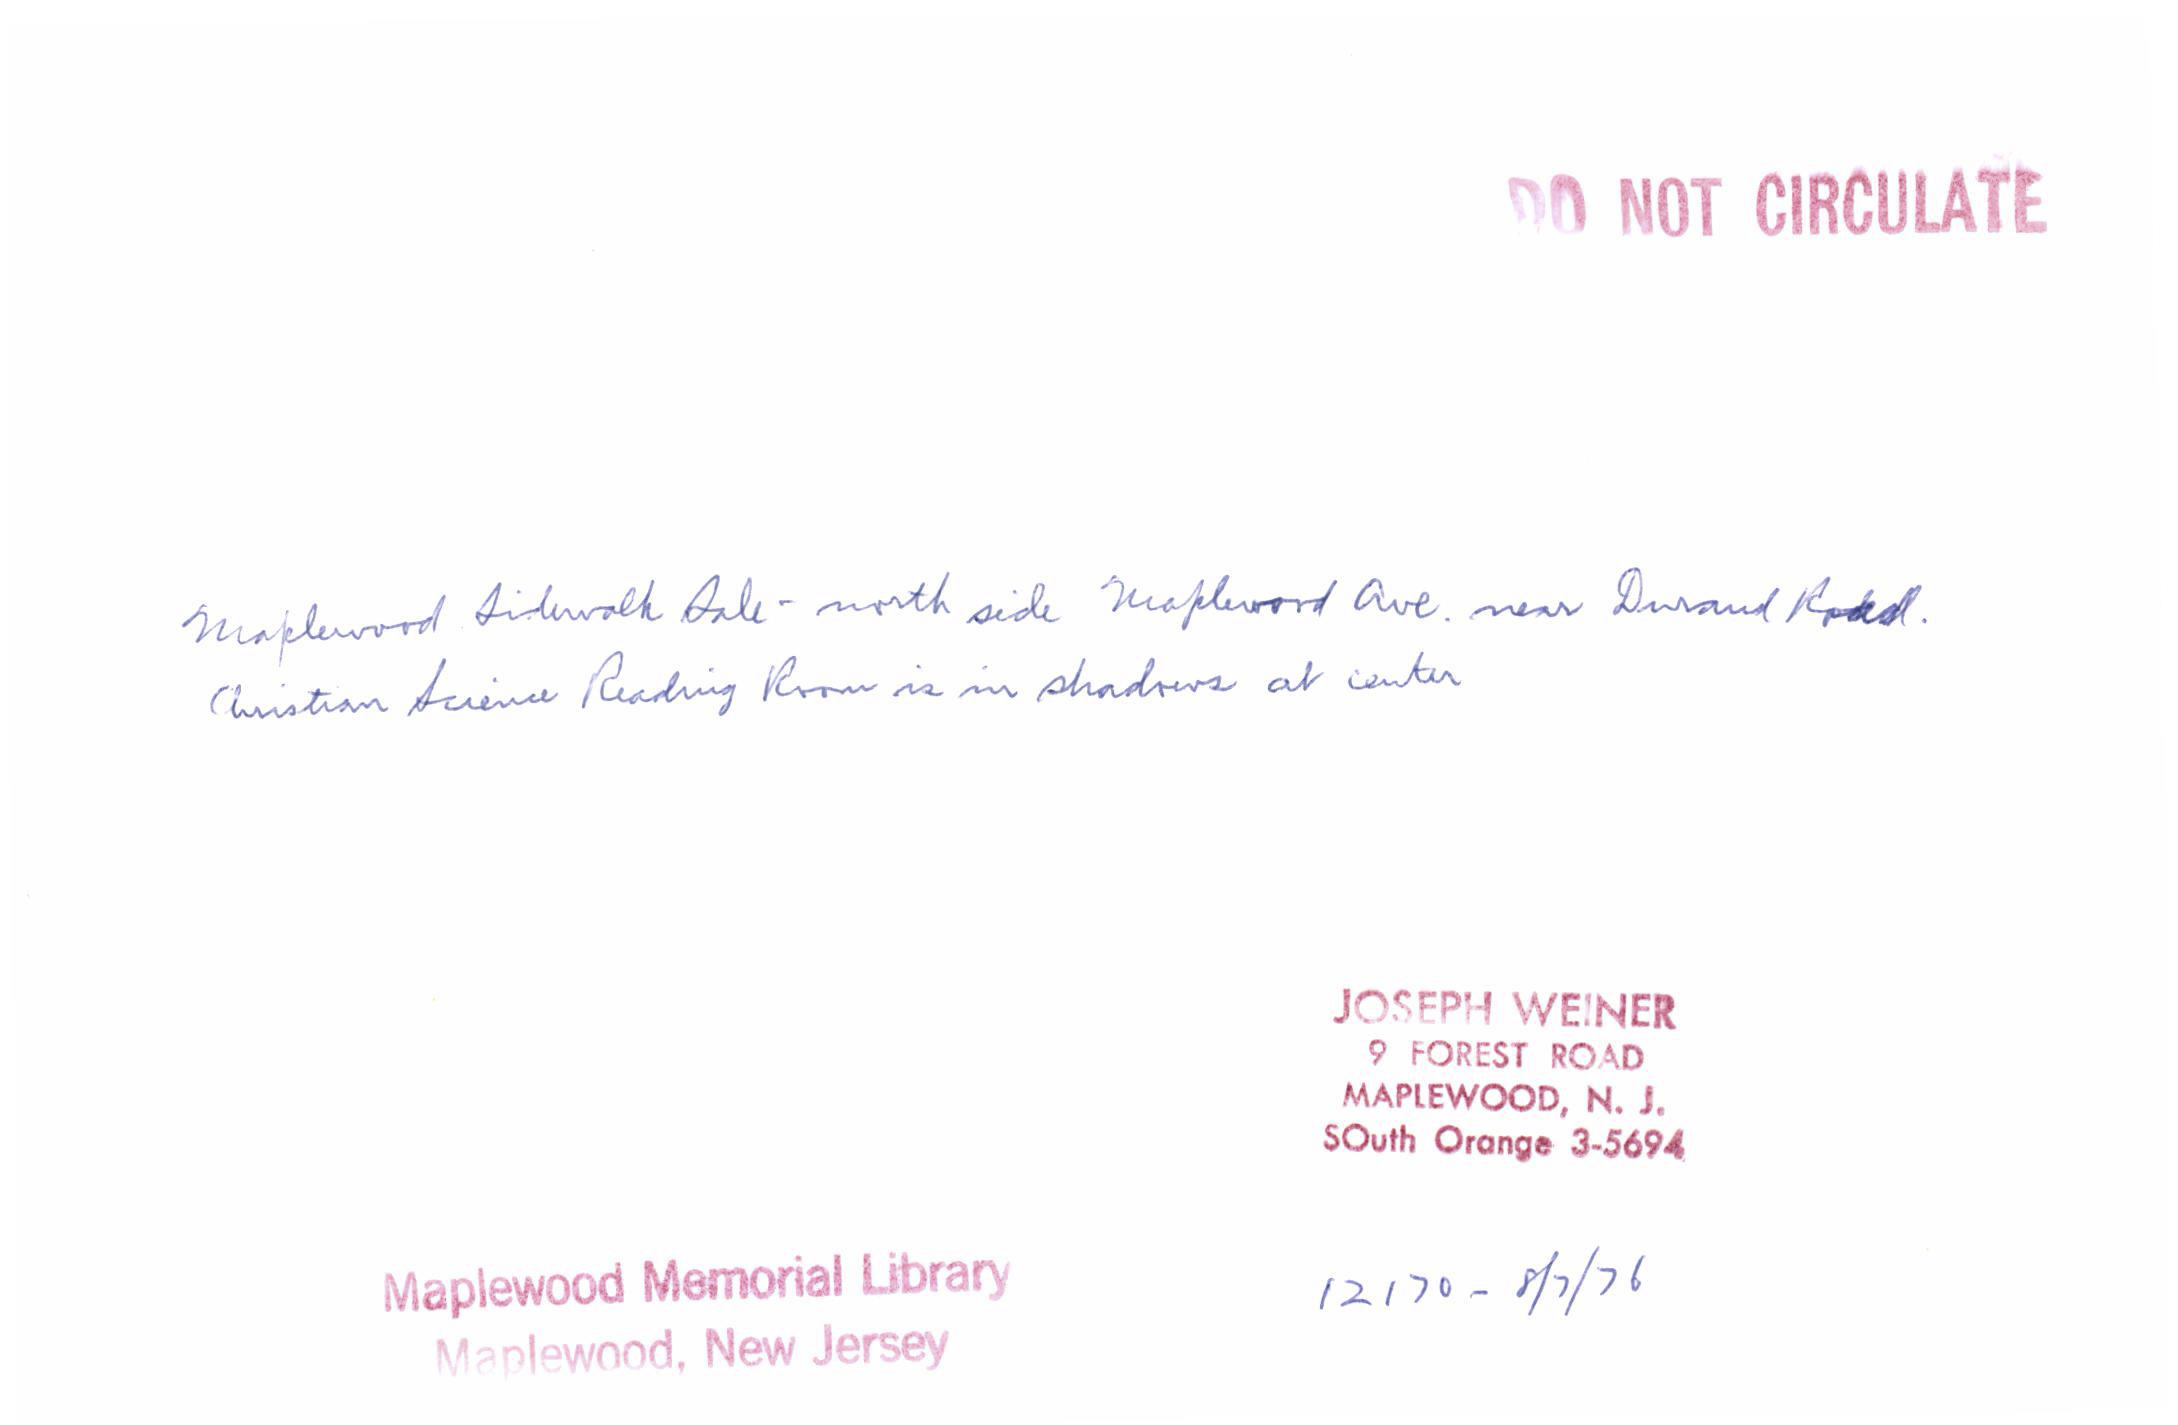 DO NOT CIRCULATE
Maplewood Sidewalk Sale - north side Maplewood Ave. near Durand Road.
Christian Science Reading Room is in shadows at center
JOSEPH WEINER
9 FOREST ROAD
MAPLEWOOD, N. J.
SOuth Orange 3-5694
Maplewood Memorial Library
Maplewood, New Jersey
12170 - 8/7/76